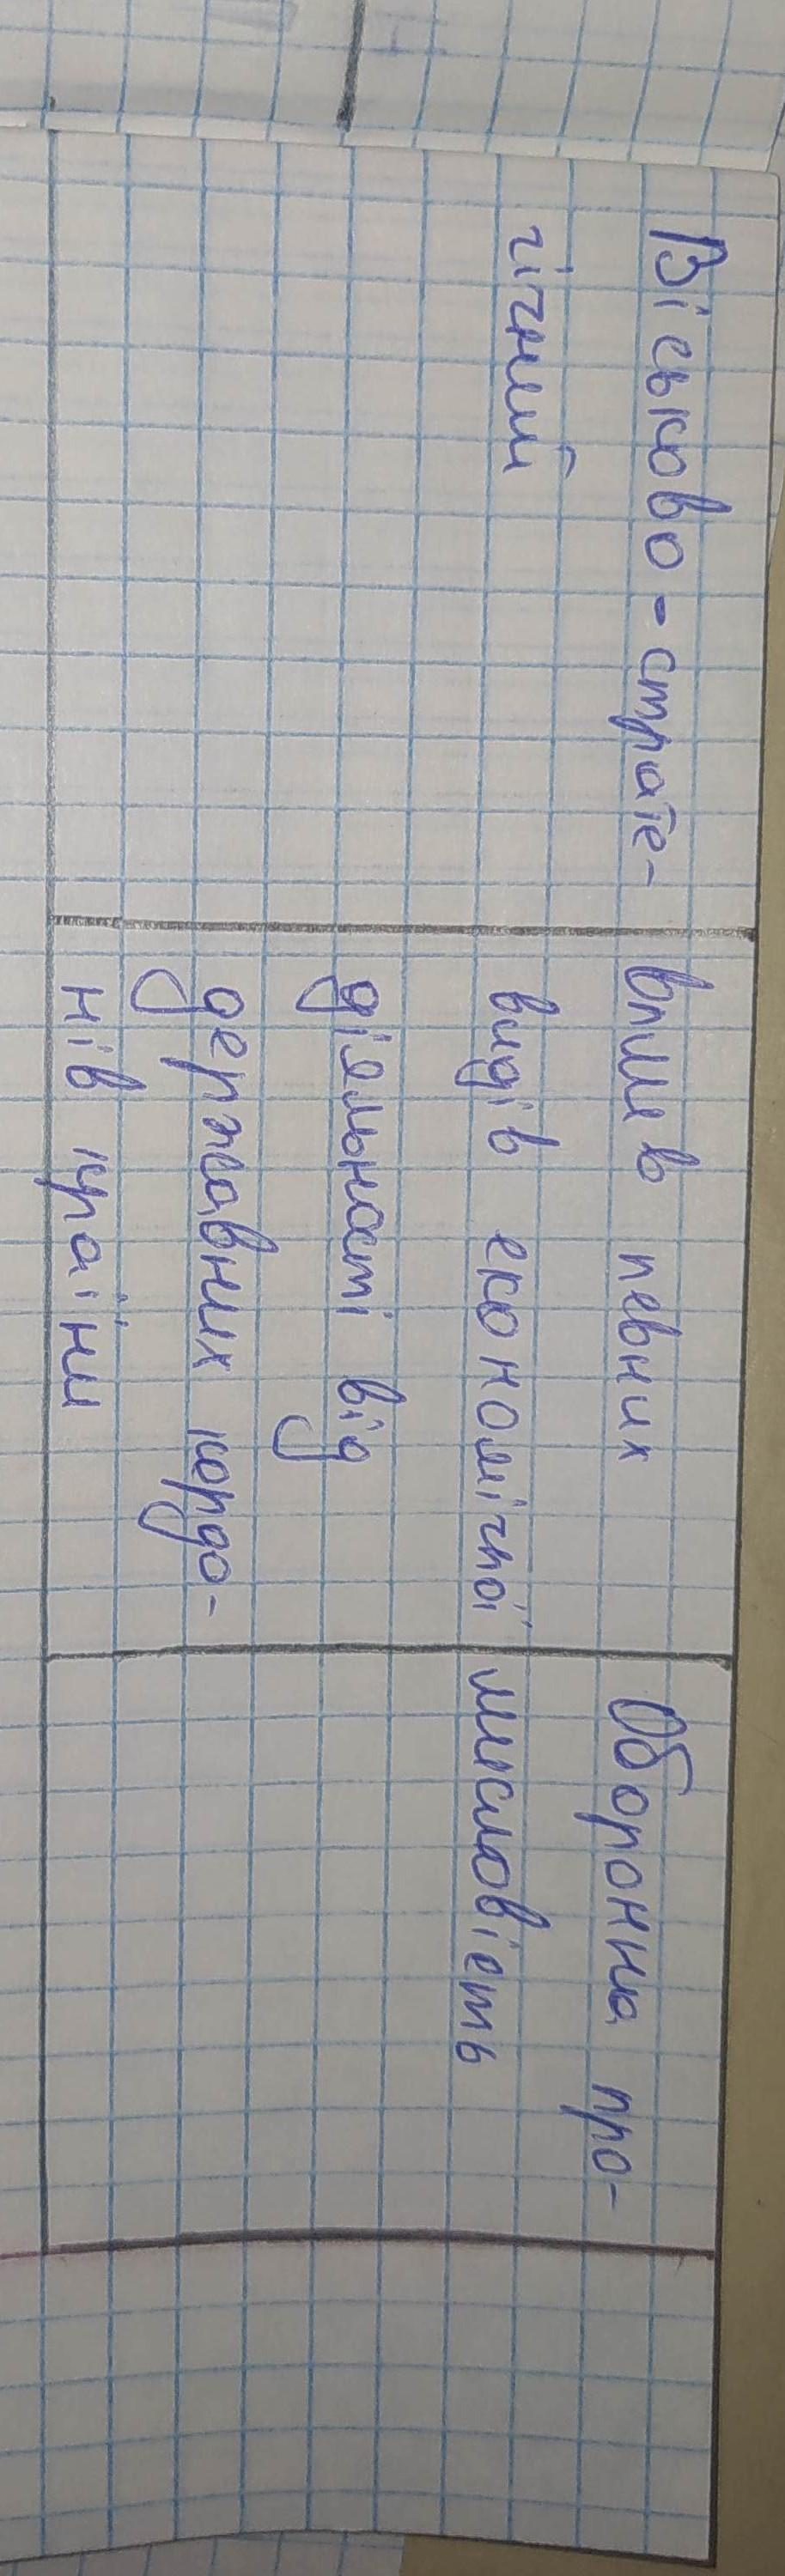 Військово-страте-
гічний
вплив певних
видів економічної
діяльності від
державних кордо-
нів країни
Оборонна про-
мисловість